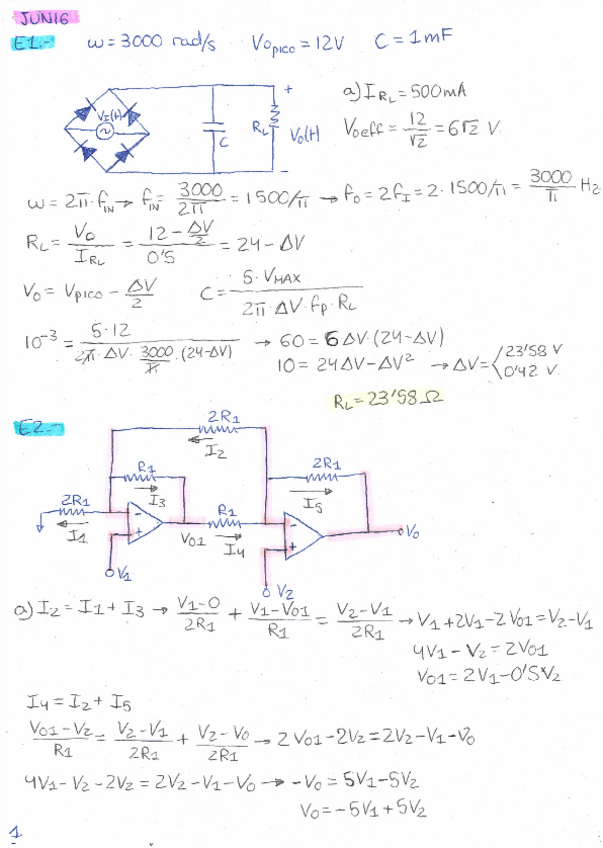 JUN16
E1.- ω=3000 rad/s Vopico=12V C=1mF
VI(t)
C
RL
+
Vo(t)
-
a) IRL=500mA
Voeff = 12/√2 = 6√2 V.
ω=2π·fIN → fIN = 3000/2π = 1500/π → fo=2fI=2·1500/π = 3000/π Hz
RL = Vo/IRL = (12-ΔV/2)/0'5 = 24-ΔV
Vo = Vpico - ΔV/2 C = 5·VMAX/(2π·ΔV·fp·RL)
10⁻³ = 5·12/(2π·ΔV·3000/π·(24-ΔV)) → 60=6ΔV·(24-ΔV)
10=24ΔV-ΔV² → ΔV=< 23'58 V
0'42 V.
RL=23'58Ω
E2.-
2R1
I2
R1
I3
2R1
I5
2R1
I1
-
+
V01
R1
I4
-
+
Vo
V1
V2
a) I2=I1+I3 → (V1-0)/2R1 + (V1-V01)/R1 = (V2-V1)/2R1 → V1+2V1-2V01=V2-V1
4V1-V2=2V01
V01=2V1-0'5V2
I4=I2+I5
(V01-V2)/R1 = (V2-V1)/2R1 + (V2-Vo)/2R1 → 2V01-2V2=2V2-V1-Vo
4V1-V2-2V2=2V2-V1-Vo → -Vo=5V1-5V2
Vo=-5V1+5V2
1